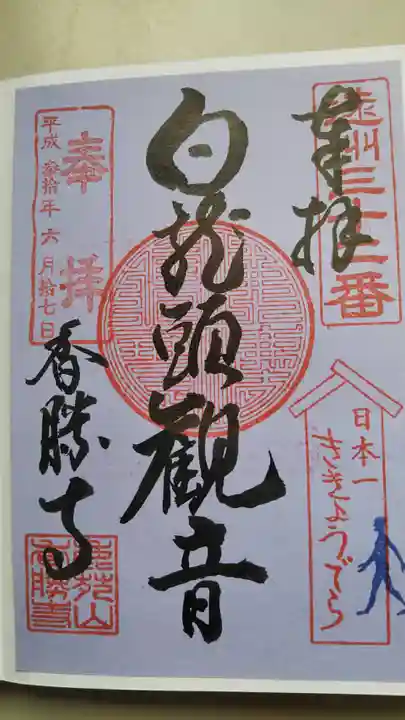 遠州三十三番
奉拝
日本一
ききょうでら
白龍頭観音
奉拝
平成参拾年六月拾七日
香勝寺